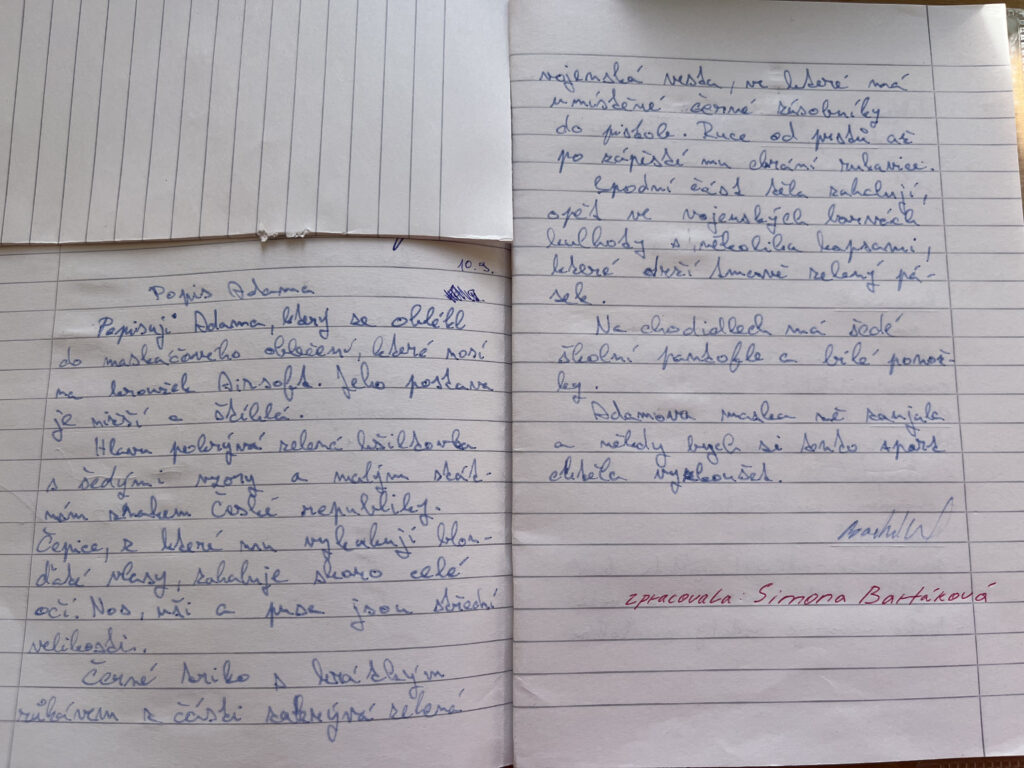 10.9.
Popis Adama
Popisuji Adama, který se oblékl
do maskáčového oblečení, které nosí
na kroužek Airsoft. Jeho postava
je nižší a štíhlá.
Hlavu pokrývá zelená kšiltovka
s šedými vzory a malým stát-
ním znakem České republiky.
Čepice, z které mu vykukují blon-
ďaté vlasy, zahaluje skoro celé
oči. Nos, uši a pusa jsou střední
velikosti.
Černé triko s krátkým
rukávem z části zakrývá zelená
vojenská vesta, ve které má
umístěné černé zásobníky
do pistole. Ruce od prstů až
po zápěstí mu chrání rukavice.
Spodní část těla zahalují,
opět ve vojenských barvách
kalhoty s několika kapsami,
které drží tmavě zelený pá-
sek.
Na chodidlech má šedé
školní pantofle a bílé ponož-
ky.
Adamova maska mě zaujala
a někdy bych si tento sport
chtěla vyzkoušet.
zpracovala: Simona Bartáková